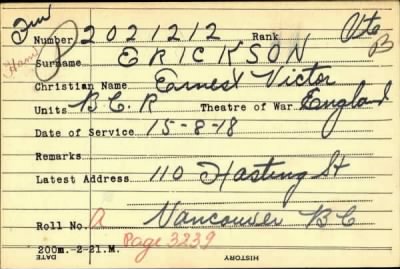 Number 2021212 Rank Pte
Surname ERICKSON B
Christian Name Ernest Victor
Units B.C.R Theatre of War England
Date of Service 15-8-18
Remarks
Latest Address 110 Hasting St
Roll No. A Vancouver BC
Page 3239
200m.-2-21M.
DATE HISTORY